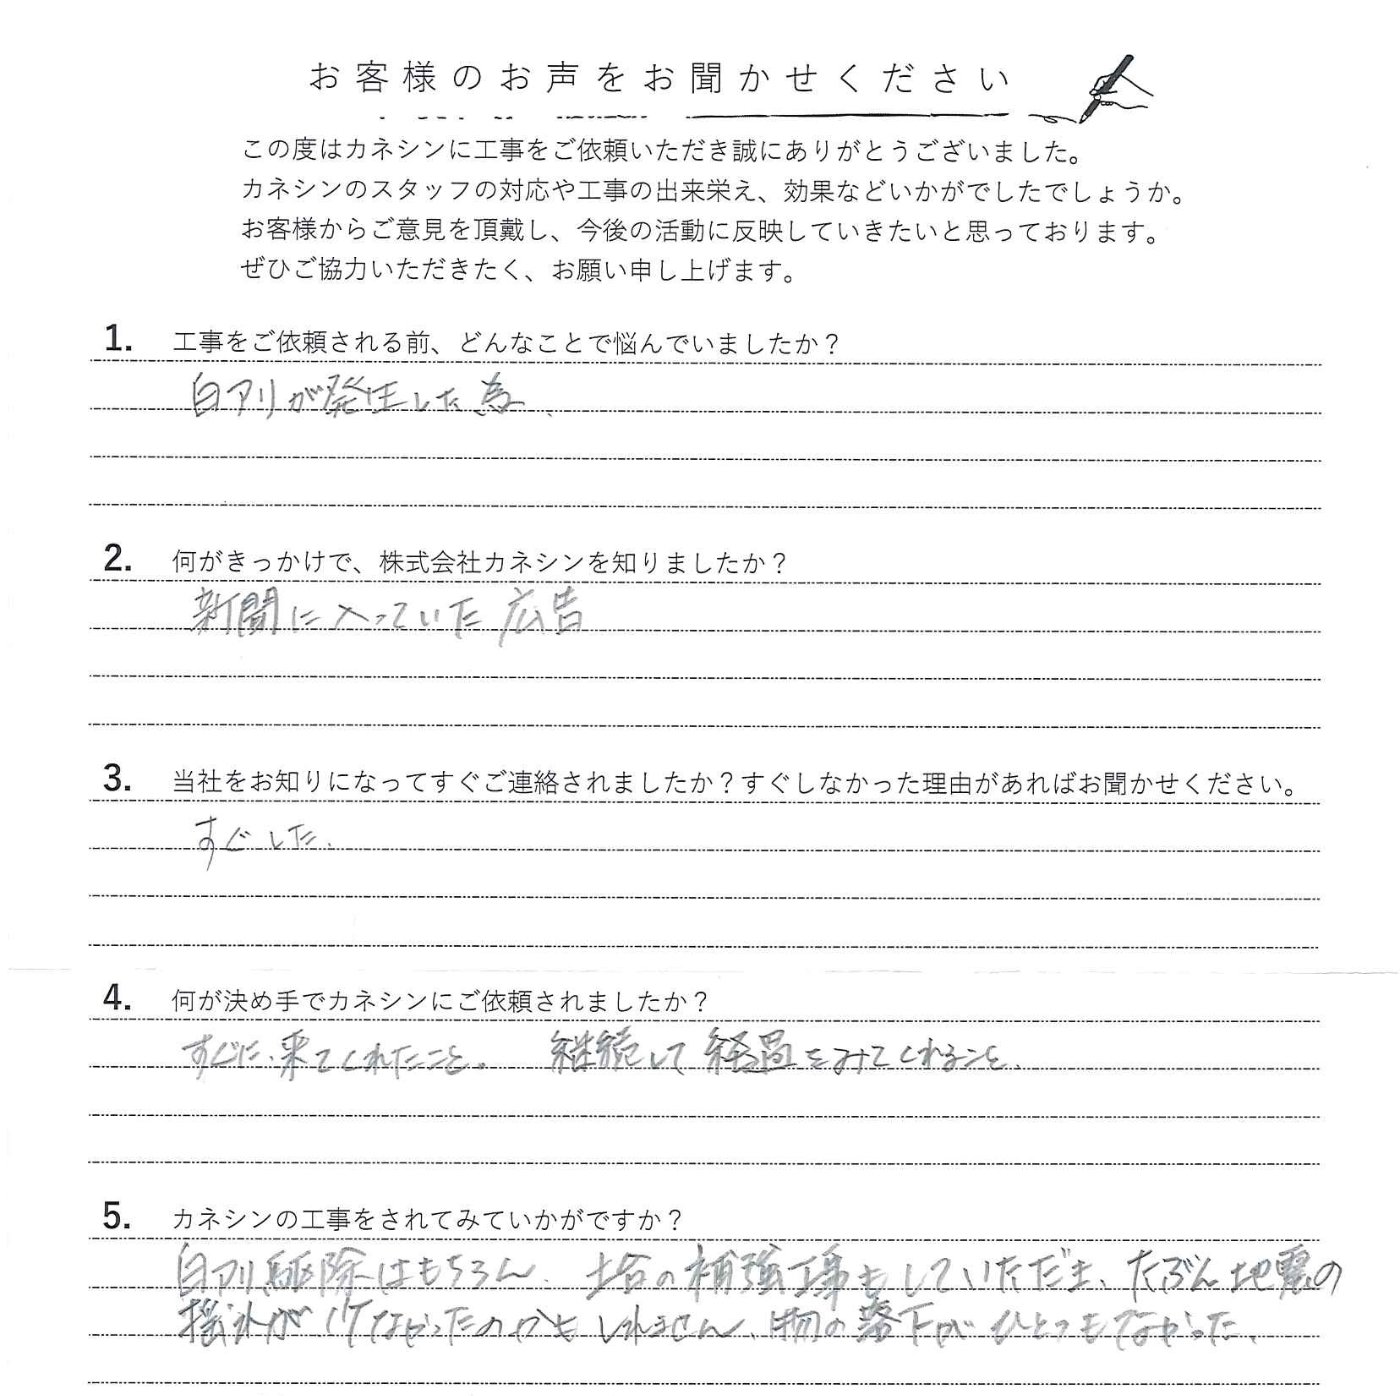 お客様のお声をお聞かせください
この度はカネシンに工事をご依頼いただき誠にありがとうございました。
カネシンのスタッフの対応や工事の出来栄え、効果などいかがでしたでしょうか。
お客様からご意見を頂戴し、今後の活動に反映していきたいと思っております。
ぜひご協力いただきたく、お願い申し上げます。
1. 工事をご依頼される前、どんなことで悩んでいましたか？
白アリが発生した為、
2. 何がきっかけで、株式会社カネシンを知りましたか？
新聞に入っていた広告
3. 当社をお知りになってすぐご連絡されましたか？すぐしなかった理由があればお聞かせください。
すぐした。
4. 何が決め手でカネシンにご依頼されましたか？
すぐに、来てくれたこと。 継続して経過をみてくれること。
5. カネシンの工事をされてみていかがですか？
白アリ駆除はもちろん、土台の補強工事もしていただき、たぶん地震の
揺れが少なかったのかもしれません、物の落下がひとつもなかった。